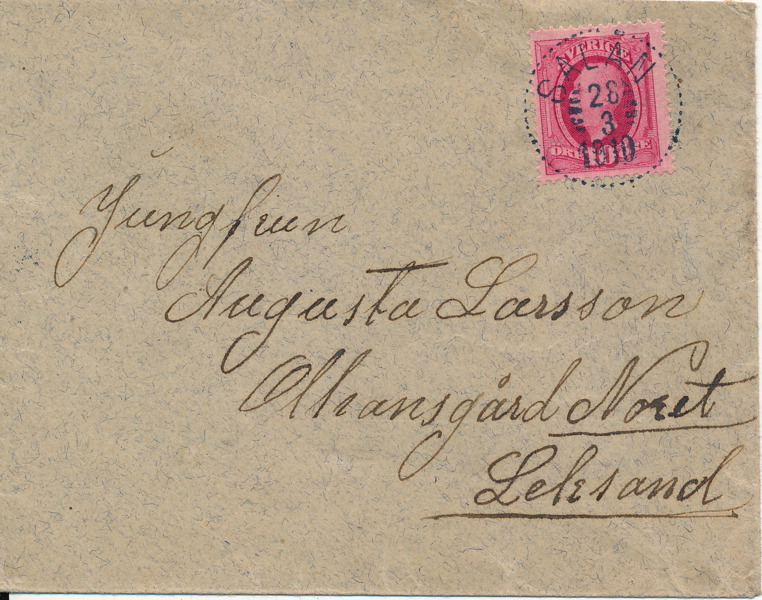 SVERIGE
SÄLÅN
28
3
1910
ÖRE 10 ÖRE
Jungfrun
Augusta Larsson
Olhansgård Noret
Leksand